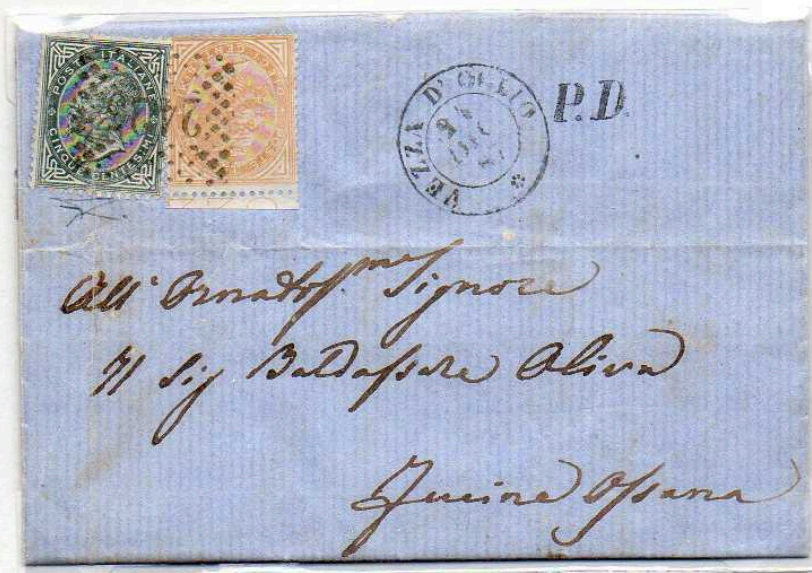 POSTE ITALIANE
CINQUE CENTESIMI
VEZZA D'OGLIO
P.D.
All' Ornatoss.mo Signore
Il Sig Baldassare Oliva
Ossana